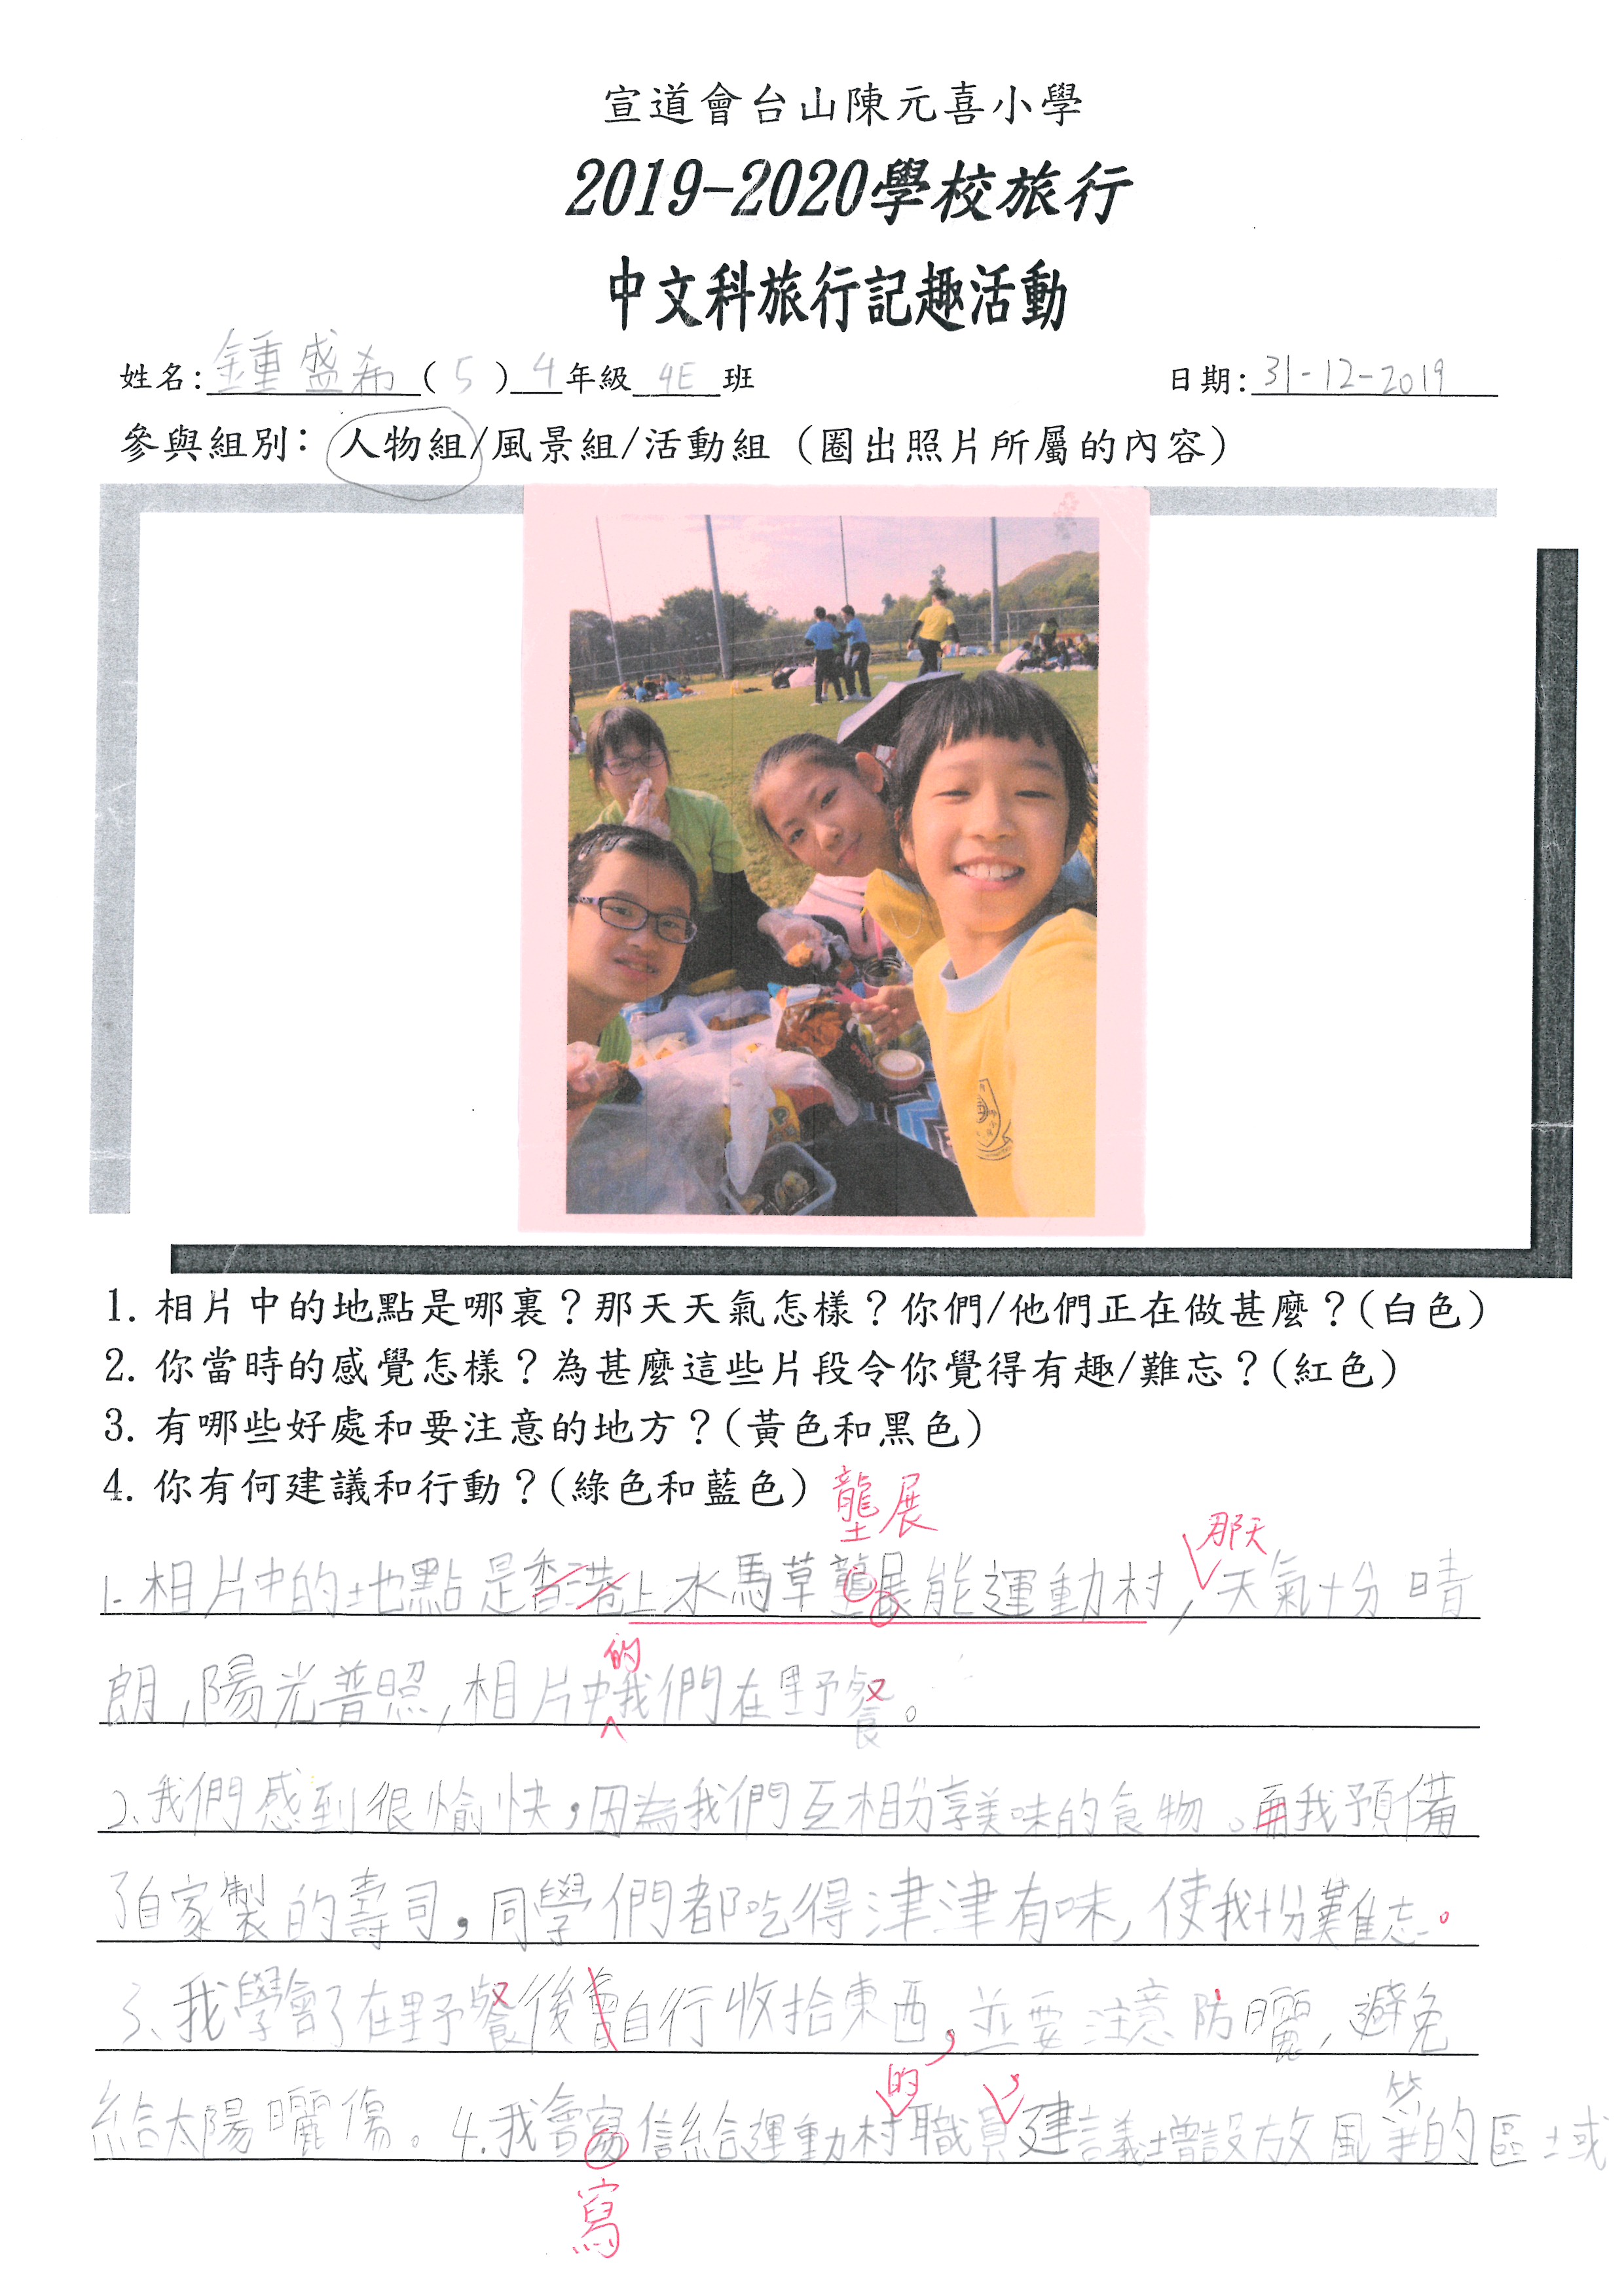 宣道會台山陳元喜小學
2019-2020學校旅行
中文科旅行記趣活動
姓名:鍾盛希(5)4年級4E班
日期:31-12-2019
參與組別：人物組/風景組/活動組（圈出照片所屬的內容）
1. 相片中的地點是哪裏？那天天氣怎樣？你們/他們正在做甚麼？(白色)
2. 你當時的感覺怎樣？為甚麼這些片段令你覺得有趣/難忘？(紅色)
3. 有哪些好處和要注意的地方？(黃色和黑色)
4. 你有何建議和行動？(綠色和藍色)
壟展
那天
1.相片中的地點是香港上水馬草壟展能運動村,天氣十分晴
的
朗,陽光普照,相片中我們在野餐。
2.我們感到很愉快,因為我們互相分享美味的食物。再我預備
了自家製的壽司,同學們都吃得津津有味,使我十份難忘。
3、我學會了在野餐後會自行收拾東西,並要注意防曬,避免
的
給太陽曬傷。4.我會寫信給運動村職員建議增設放風箏的區域
寫